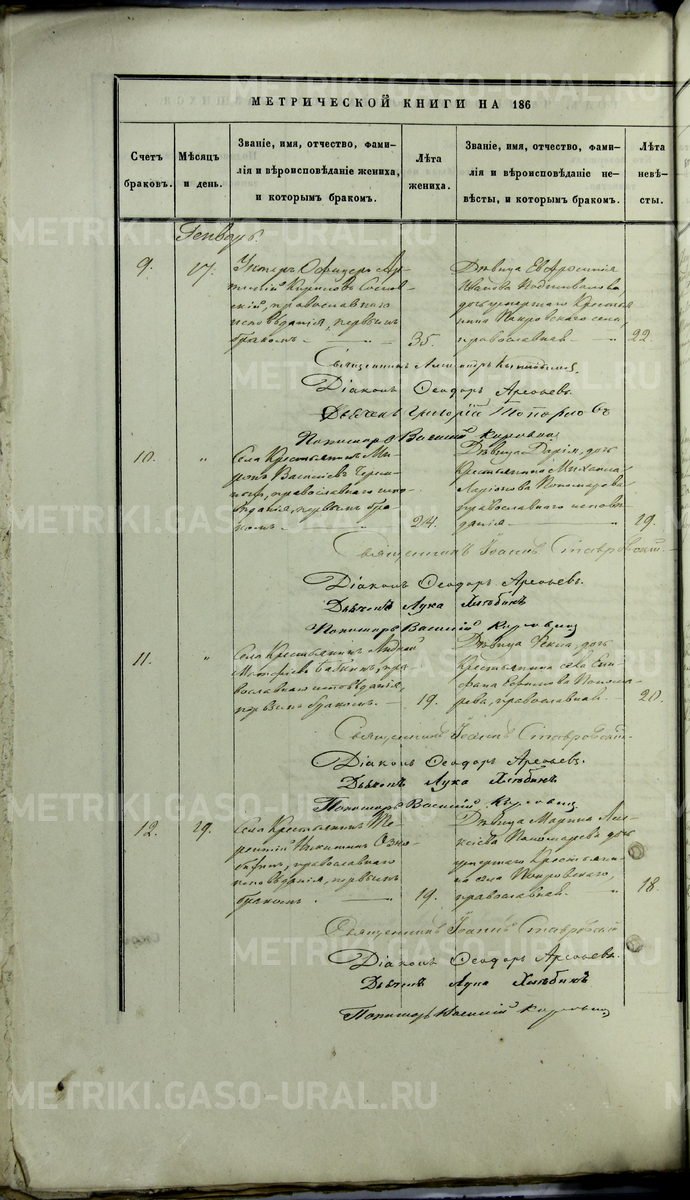 МЕТРИЧЕСКОЙ КНИГИ НА 186
Счетъ
браковъ.
Мѣсяцъ
и день.
Званіе, имя, отчество, фами-
лія и вѣроисповѣданіе жениха,
и которымъ бракомъ.
Лѣта
жениха.
Званіе, имя, отчество, фами-
лія и вѣроисповѣданіе не-
вѣсты, и которымъ бракомъ.
Лѣта
невѣ-
сты.
Генварь.
9.
17.
Унтеръ Офицеръ
Кириловъ
православнаго
исповѣданія, первымъ
бракомъ
35.
Дѣвица Евфросинія
Иванова
дочь умершаго Крестья
нина Покровскаго села,
православная
22.
Священникъ
Діаконъ Ѳеодоръ Арефьевъ.
Дьячекъ Григорій Топорковъ
Пономарь Василій
10.
"
Села Крестьянинъ Ми
ронъ Василіевъ
православнаго испо
вѣданія, первымъ бра
комъ
24.
Дѣвица Дарія, дочь
Крестьянина Михаила
Ларіонова Пономарева
православнаго исповѣ
данія
19.
Священникъ Іоаннъ Ставровскій
Діаконъ Ѳеодоръ Арефьевъ.
Дьячекъ Лука Хлѣбинъ
Пономарь Василій
11.
"
Села Крестьянинъ Андрей
Бабинъ, пра
вославнаго исповѣданія,
первымъ бракомъ.
19.
Дѣвица Ѳекла, дочь
Крестьянина села
Понома
рева, православная.
20.
Священникъ Іоаннъ Ставровскій
Діаконъ Ѳеодоръ Арефьевъ.
Дьячекъ Лука Хлѣбинъ
Пономарь Василій
12.
29.
Села Крестьянинъ Те
рентій Никитинъ Озно
бихинъ, православнаго
исповѣданія, первымъ
бракомъ.
19.
Дѣвица Марина Алек
сіева Пономарева дочь
умершаго Крестьяни
на села Покровскаго,
православная.
18.
Священникъ Іоаннъ Ставровскій
Діаконъ Ѳеодоръ Арефьевъ.
Дьячекъ Лука Хлѣбинъ
Пономарь Василій
METRIKI.GASO-URAL.RU